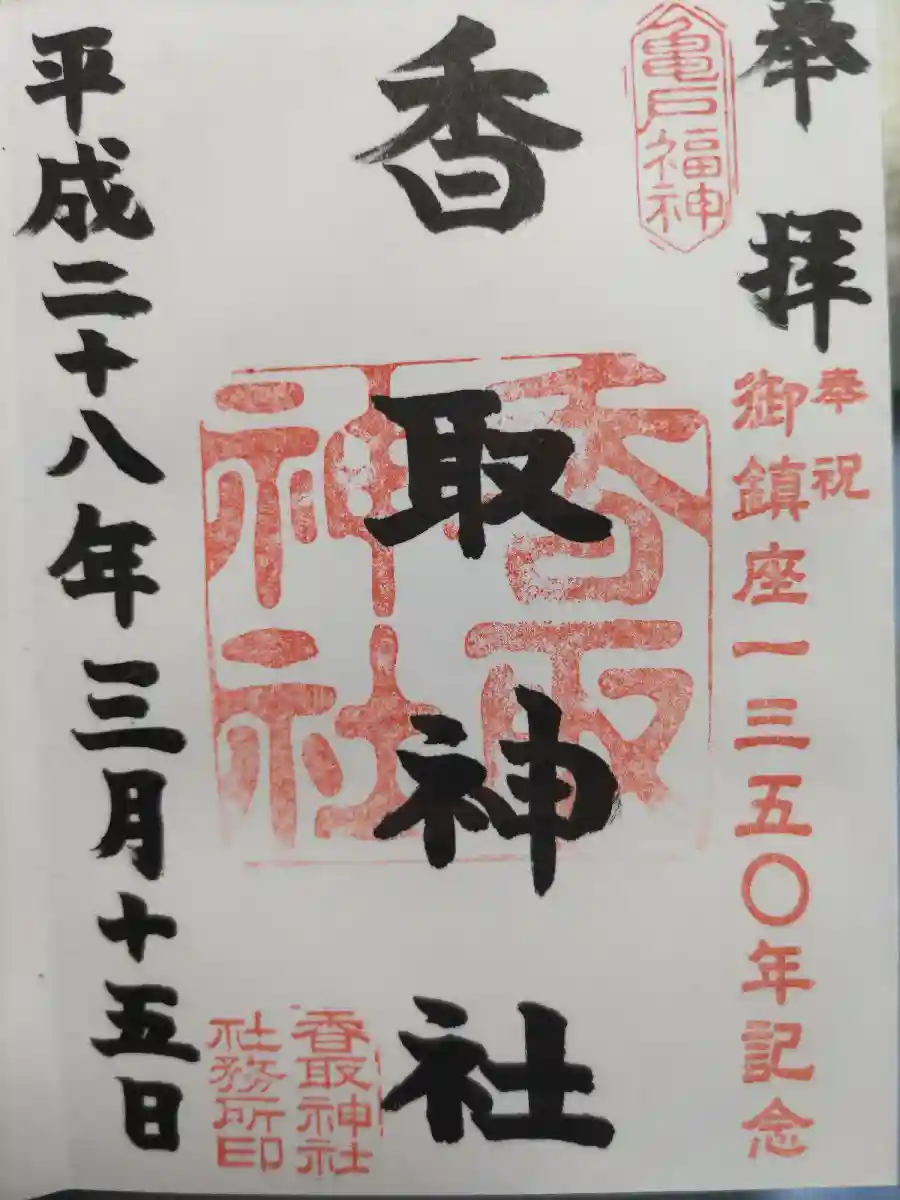 奉拝
亀戸福神
奉祝
御鎮座一三五〇年記念
香取神社
香取
神社
香取神社
社務所印
平成二十八年三月十五日